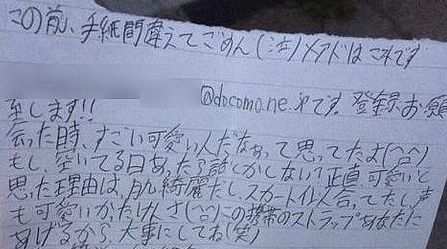 この前、手紙間違えてごめん(汗)メアドはこれです
@docomo.ne.jpです。登録お願
至します!!
会った時、すごい可愛い人だなぁって思ってたよ(^^)
もし、空いてる日あったら話しかしない?正直可愛いと
思った理由は、肌綺麗だし、スカート似合ってたし声
も可愛いかったけんさ(^^)この携帯のストラップあなたに
あげるから大事にしてね(笑)